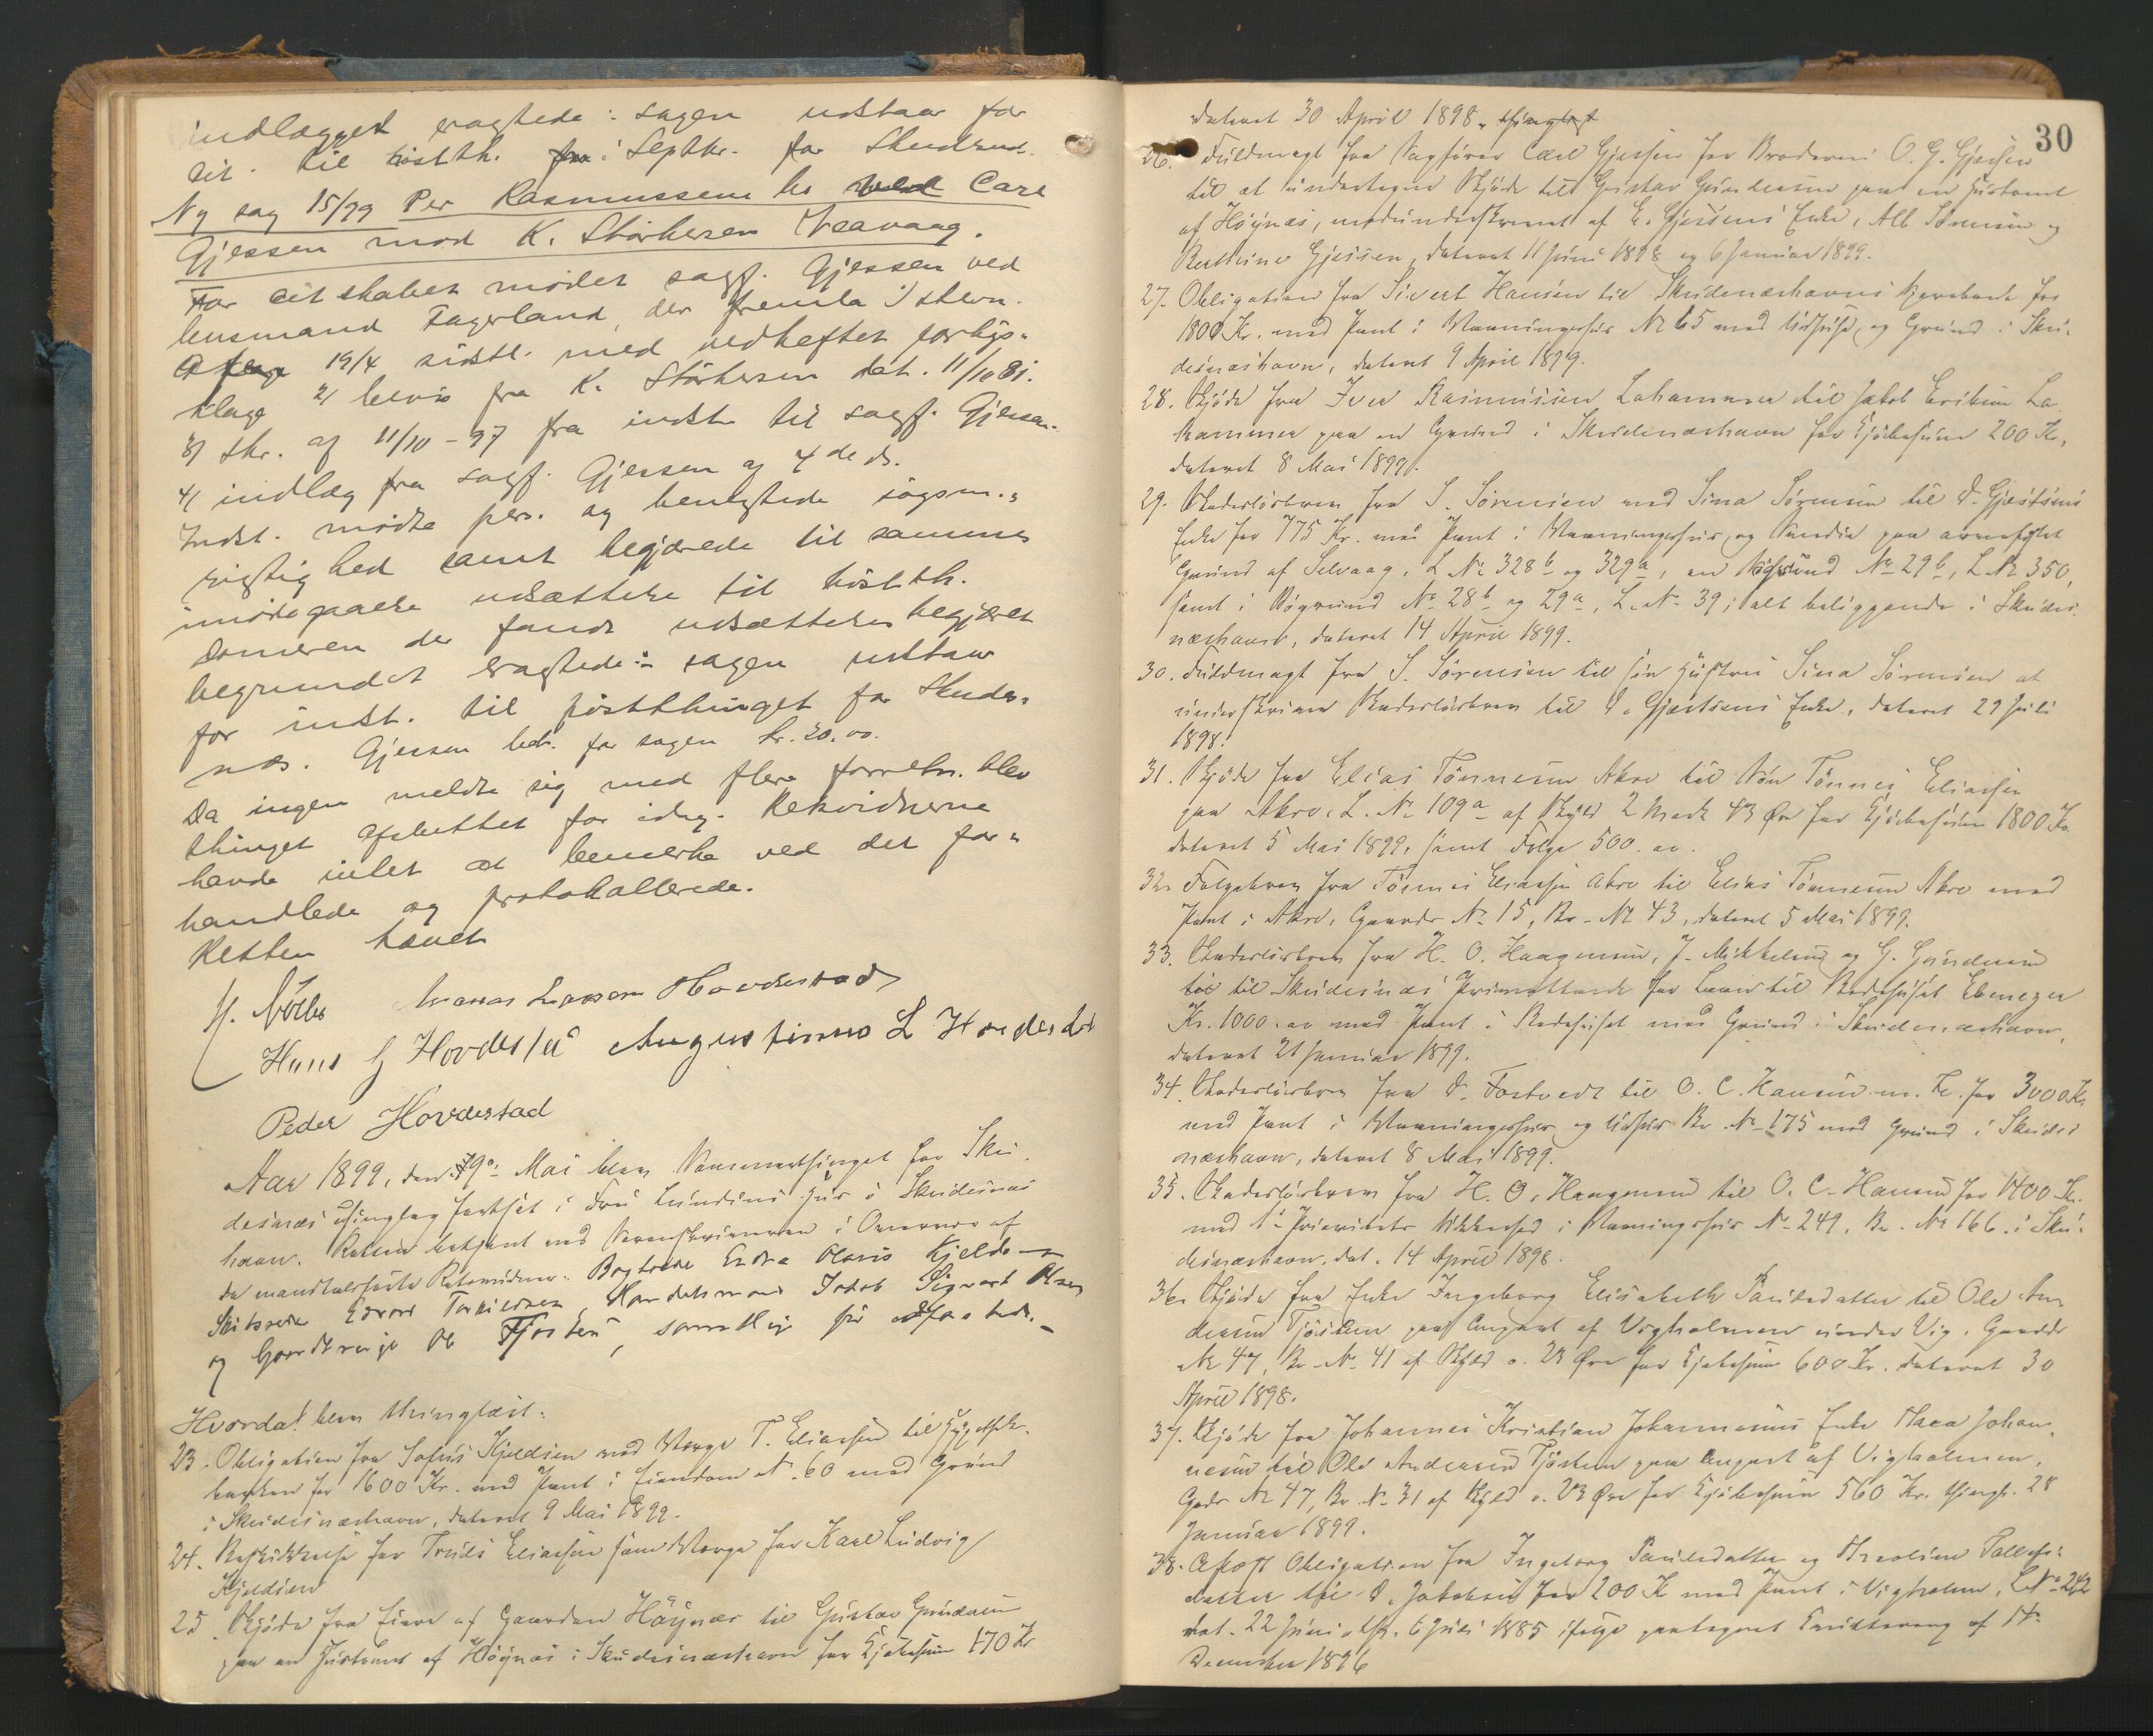 indlægget eragtede: sagen udstaar for
cit. til høstth. i Septbr. for Skudesnæs.
Ny sag 15/99 Per Rasmussens bo ved Carl
Gjessen mod K. Störkersen Veavaag.
For citskaber møder sagf. Gjessen ved
lensmand Fagerland, der fremla 1/ stevn.
af 19/4 sidstl. med vedheftet forligs-
klage 2/ bevis fra K. Störkersen dat. 11/10 81.
3/ skr. af 11/10-97 fra indst. til sagf. Gjessen.
4/ indlæg fra sagf. Gjessen af 4de ds.
Indst. mødte pers. og benegtede søgsm.s
rigtighed samt begjærede til sammes
imødegaaelse udsættelse til høstth.
Domeren der fandt udsættelsen begjæret
begrundet eragtede: sagen udstaar
for indst. til høstthinget for Skudes-
næs. Gjessen bet. for sagen kr. 20.00.
Da ingen meldte sig med flere forretn. blev
thinget afsluttet for idag. Retsvidnerne
havde intet at bemerke ved det for-
handlede og protokollerede.
Retten hævet
Larsen Hovdestad
Hans G Hovdestad Augustinus L Hovdestad
Peder Hovdestad
Aar 1899, den 9de Mai blev Sommerthinget for Sku-
desnæs thinglag fortsat i Fru Lundins Hus i Skudesnæs-
havn. Retten betjent med Sorenskriveren i Overvær af
de mandtalførte Retsvidner: Endre Olaus Kjelds
Edvard Torkildsen, Handelsmand Jakob Sigvart Olsen
og Ole Tjøsten, samtlige
Hvorda! blev thinglæst:
23. Obligation fra Sofus Kjeldsen med Værge T. Eliassen til Hypothek-
banken for 1600 Kr. med Pant i Eiendom No. 60 med Grund
i Skudesnæshavn, dateret 9 Mai 1899.
24. Beskikkelse for Truls Eliassen som Værge for Karl Ludvig
Kjeldsen
25. Skjøde fra Eiere af Gaarden Höynæs til Gustav Gundersen
paa en Hustomt af Höynæs i Skudesnæshavn for Kjøbesum 170 Kr
30
dateret 30 April 1898.
26. Fuldmagt fra Sagfører Carl Gjessen for Broderen O. G. Gjessen
til at undertegne Skjøde til Gustav Gundersen paa en Hustomt
af Höynæs, medunderskrevet af E. Gjessens Enke, Alb Sørensen og
Gjessen, dateret 11 Juni 1898 og 6 Januar 1899.
27. Obligation fra Sivert Hansen til Skudesnæshavns Sparebank for
1800 Kr. med Pant i Vaaningshus No 65 med Udhuse og Grund i Sku-
desnæshavn, dateret 9 April 1899.
28. Skjøde fra Iver Rasmussen Lahammer til Jakob Eriksen La-
hammer paa en Grund i Skudesnæshavn for Kjøbesum 200 Kr,
dateret 8 Mai 1899.
29. Skadesløsbrev fra S. Sørensen med Sina Sørensen til D. Gjertsens
Enke for 775 Kr. med Pant i Vaaningshus og Søndre paa
Grund af Selvaag, L No 328b og 329a, en Søgrund No 29b, L No 350,
samt i Søgrund No 28b og 29a, L. No 39; alt beliggende i Skudes-
næshavn, dateret 14 April 1899.
30. Fuldmagt fra S. Sørensen til sin Hustru Sina Sørensen at
underskrive Skadesløsbrev til D. Gjertsens Enke, dateret 29 Juli
1898.
31. Skjøde fra Elias Tönnesen Akre til Søn Tönnes Eliassen
paa Akre, L. No 109a af Skyld 2 Mark 43 Øre for Kjøbesum 1800 Kr.
dateret 5 Mai 1899, samt Folge 500.00.
32. Folgebrev fra Tönnes Eliassen Akre til Elias Tönnesen Akre med
Pant i Akre, Gaards No 15, Br. No 43, dateret 5 Mai 1899.
33. Skadesløsbrev fra H. O. Haagensen, J. Mikkelsen og G. Gundersen
til Skudesnæs Privatbank for Laan til Bedehuset Ebenezer
Kr. 1000.00 med Pant i Bedehuset med Grund i Skudesnæshavn,
dateret 21 Januar 1899.
34. Skadesløsbrev fra D. Fostvedt til O. C. Hansen m. fl. for 3000 Kr.
med Pant i Vaaningshus og Udhus Br. No 175 med Grund i Skudes-
næshavn, dateret 8 Mai 1899.
35. Skadesløsbrev fra H. O. Haagensen til O. C. Hansen for 1400 Kr.
med 1ste Prioritets Sikkerhed i Vaaningshus No 249, Br. No 166 i Sku-
desnæshavn, dat. 14 April 1898.
36. Skjøde fra Enke Ingeborg Elisabeth Paulsdatter til Ole An-
dersen Tjösten paa Enpart af Vigholmen under Vig, Gaards
No 47, Br. No 41 af Skyld 0.23 Øre for Kjøbesum 600 Kr. dateret 30
April 1898.
37. Skjøde fra Johannes Kristian Johannesens Enke Thea Johan-
nesen til Ole Andersen Tjösten paa Enpart af Vigholmen,
Gaards No 47, Br. No 31 af Skyld 0.23 Øre for Kjøbesum 560 Kr. thingl. 28
Januar 1899.
38. Obligation fra Ingeborg Paulsdatter og
datter til D. Jakobsen for 200 Kr med Pant i Vigholmen, L No 242
dat. 22 Juni 6 Juli 1885 ifølge paategnet Kvittering af 14
December 1896